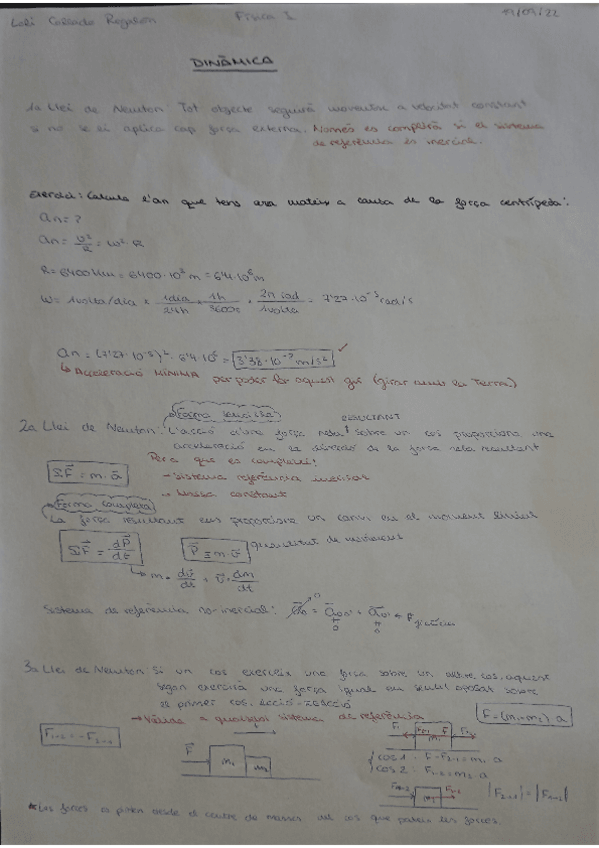 Física I
DINÀMICA
1a Llei de Newton: Tot objecte seguirà a velocitat constant
si no se li aplica cap força externa. Només es complirà si el sistema
de referència és inercial.
Exercici: Calcula l'an que tens ara mateix a causa de la força centrípeta:
an = ?
an = v²/R = ω² · R
R = 6400 km = 6400 · 10³ m = 6'4 · 10⁶ m
W = 1volta/dia × 1dia/24h × 1h/3600s × 2π rad/1volta = 7'27 · 10⁻⁵ rad/s
an = (7'27 · 10⁻⁵)² · 6'4 · 10⁶
↳ Acceleració MÍNIMA per poder fer aquest gir (girar amb la Terra)
Forma senzilla
RESULTANT
2a Llei de Newton: L'acció d'una força neta sobre un cos proporciona una
acceleració en la direcció de la força neta resultant
Pera que es compleixi:
ΣF⃗ = m · a⃗
- Sistema referència inercial
- Massa constant
Forma completa
La força resultant ens proporciona un canvi en el moment lineal
ΣF⃗ = dP⃗/dt
P⃗ = m · v⃗
quantitat de moviment
↳ m · dv⃗/dt + v⃗ · dm/dt
Sistema de referència no-inercial:
3a Llei de Newton: Si un cos exerceix una força sobre un altre cos, aquest
segon exercirà una força igual en sentit oposat sobre
el primer cos. Acció-reacció
→ Vàlida a qualsevol sistema de referència
F = (m₁+m₂) · a
F₁₋₂ = -F₂₋₁
F⃗
m₁
m₂
cos 1: F - F₂₋₁ = m₁ · a
cos 2: F₁₋₂ = m₂ · a
|F₂₋₁| = |F₁₋₂|
* Les forces es posen desde el centre de masses del cos que pateix les forces.